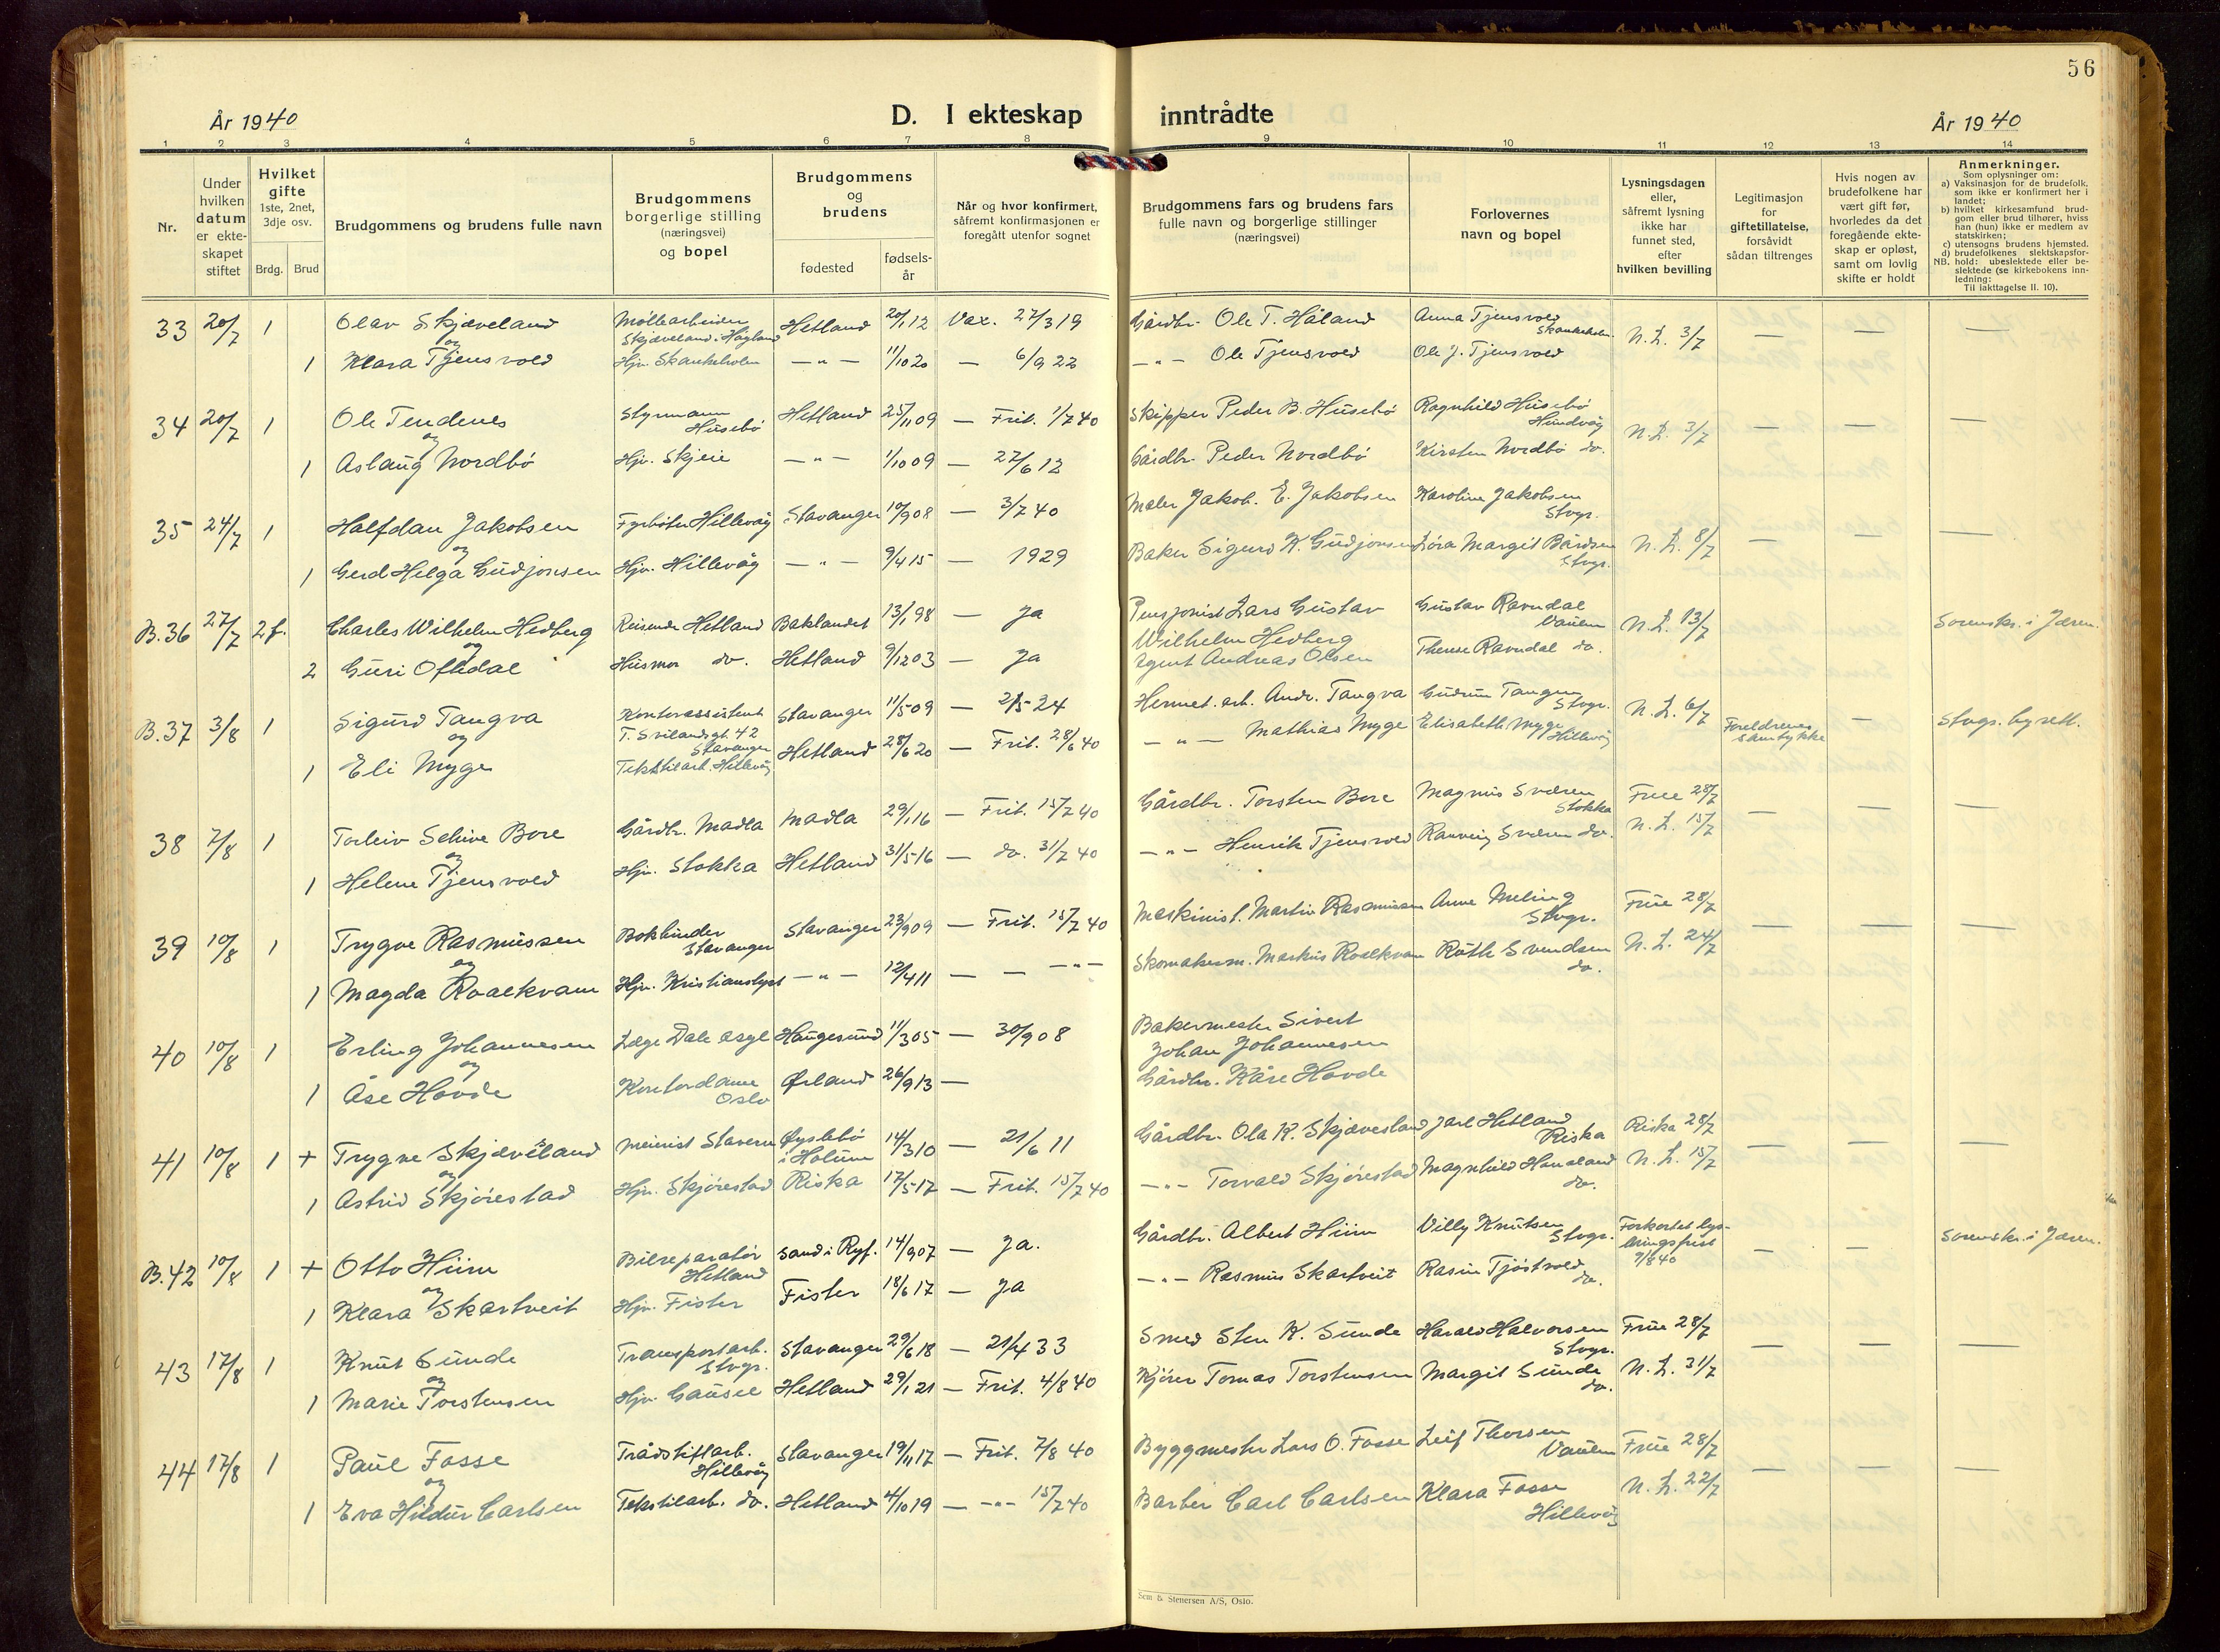 56
År 1940
D. I ekteskap inntrådte
År 1940
1 2 3 4 5 6 7 8 9 10 11 12 13 14
Nr.
Under hvilken datum er ekteskapet stiftet
Hvilket gifte 1ste, 2net, 3dje osv.
Brdg. Brud
Brudgommens og brudens fulle navn
Brudgommens borgerlige stilling (næringsvei) og bopel
Brudgommens og brudens
fødested
fødsels-år
Når og hvor konfirmert, såfremt konfirmasjonen er foregått utenfor sognet
Brudgommens fars og brudens fars fulle navn og borgerlige stillinger (næringsvei)
Forlovernes navn og bopel
Lysningsdagen eller, såfremt lysning ikke har funnet sted, efter hvilken bevilling
Legitimasjon for giftetillatelse, forsåvidt sådan tiltrenges
Hvis nogen av brudefolkene har vært gift før, hvorledes da det foregående ekteskap er opløst, samt om lovlig skifte er holdt
Anmerkninger.
Som oplysninger om:
a) Vaksinasjon for de brudefolk, som ikke er konfirmert her i landet;
b) hvilket kirkesamfund brudgom eller brud tilhører, hviss han (hun) ikke er medlem av statskirken;
c) utensogns brudens hjemsted.
d) brudefolkenes slektskapsforhold: ubeslektede eller beslektede (se kirkebokens innledning:
NB. Til iakttagelse II. 10).
33 20/7 1 Olav Skjæveland Møllearbeider Skjæveland, Høyland Hetland 20/1 12 Vax. 27/3 19 Gårdbr. Ole T. Håland Anna Tjensvold Skankeholen N.L. 3/7 — — —
og
1 Klara Tjensvold Hjv. Skankeholen — " — 11/10 20 — 6/9 22 — " — Ole Tjensvold Ole J. Tjensvold
34 20/7 1 Ole Tendenes Styrmann Husebø Hetland 25/11 09 — Frit. 1/7 40 Skipper Peder B. Husebø Ragnhild Husebø Hundvåg N.L. 3/7 — — —
og
1 Aslaug Nordbø Hjv. Skjeie — " — 1/10 09 — 27/6 12 Gårdbr. Peder Nordbø Kirsten Nordbø do.
35 24/7 1 Halfdan Jakobsen Fyrbøter Hillevåg Stavanger 10/9 08 — 3/7 40 Maler Jakob. E. Jakobsen Karoline Jakobsen Stvgr. N.L. 8/7 — — —
og
1 Gerd Helga Gudjonsen Hjv. Hillevåg — " — 9/4 15 — 1929 Baker Sigurd K. Gudjonsen Lóra Margit Bårdsen Stvgr.
B.36 27/7 2 f. Charles Wilhelm Hedberg Reisende Hetland Baklandet 13/1 98 — Ja Pensjonist Lars Gustav Wilhelm Hedberg Gustav Ravndal Vaulen N.L. 13/7 Sorenskr. i Jæren.
og
2 Guri Oftedal Husmor do. Hetland 9/12 03 — Ja Agent Andreas Olsen Therese Ravndal do.
B.37 3/8 1 Sigurd Tangva Kontorassistent T. Svilandsgt. 42 Stavanger Stavanger 11/5 09 — 2/5 24 Hermet. arb. Andr. Tangva Gudrun Tangen Stvgr. N.L. 6/7 Foreldrenes samtykke — Stvgr. byrett.
og
1 Eli Myge Tekstilarb. Hillevåg Hetland 28/6 20 — Frit. 28/6 40 — " — Mathias Myge Elisabeth Myge Hillevåg
38 7/8 1 Torleiv Schive Bore Gårdbr. Madla Madla 29/1 16 — Frit. 15/7 40 Gårdbr. Torsten Bore Magnus Sværen Stokka Frue 28/7 — — —
og
1 Helene Tjensvold Hjv. Stokka Hetland 31/5 16 — do. 31/7 40 — " — Henrik Tjensvold Ranveig Sværen do. N.L. 15/7
39 10/8 1 Trygve Rasmussen Bokbinder Stavanger Stavanger 23/9 09 — Frit. 15/7 40 Maskinist. Martin Rasmussen Anne Meling Stvgr. Frue 28/7 — — —
og
1 Magda Roalkvam Hjv. Kristianslyst — " — 12/4 11 — — — " — Skomakerm. Markus Roalkvam Ruth Svendsen do. N.L. 24/7
40 10/8 1 Erling Johannesen Læge Dale asyl Haugesund 11/3 05 — 30/9 08 Bakermester Sivert Johan Johannesen
og
1 Åse Hovde Kontordame Oslo Ørland 26/9 13 — Gårdbr. Kåre Hovde
41 10/8 1 + Trygve Skjæveland Meierist Stavern Øyslebø i Holum 14/3 10 — 21/6 11 Gårdbr. Ola K. Skjæveland Jarl Hetland Riska Riska 28/7 — — —
og
1 Astrid Skjørestad Hjv. Skjørestad Riska 17/5 17 — Frit. 15/7 40 — " — Torvald Skjørestad Magnhild Haneland do. N.L. 15/7
B.42 10/8 1 + Otto Hiim Bilreparatør Hetland Sand i Ryf. 14/9 07 — Ja. Gårdbr. Albert Hiim Villy Knutsen Stvgr. Forkortet lysningsfrist 9/8 40 — — Sorenskr. i Jæren.
og
1 Klara Skartveit Hjv. Fister Fister 18/6 17 — Ja — " — Rasmus Skartveit Rasin Tjöstvold do.
43 17/8 1 Knut Sunde Transportarb. Stvgr. Stavanger 29/6 18 — 21/4 33 Smed Sten K. Sunde Harald Halvorsen Stvgr. Frue 28/7 — — —
og
1 Marie Torstensen Hjv. Gausel Hetland 29/1 21 — Frit. 4/8 40 Kjører Tomas Torstensen Margit Sunde do. N.L. 31/7
44 17/8 1 Paul Fosse Trådstiftarb. Hillevåg Stavanger 19/11 17 — Frit. 7/8 40 Byggmester Lars O. Fosse Leif Thorsen Vaulen Frue 28/7 — — —
og
1 Eva Hildur Carlsen Tekstilarb. do. Hetland 4/10 19 — — " — 15/7 40 Barber Carl Carlsen Klara Fosse Hillevåg N.L. 22/7
Sem & Stenersen A/S, Oslo.